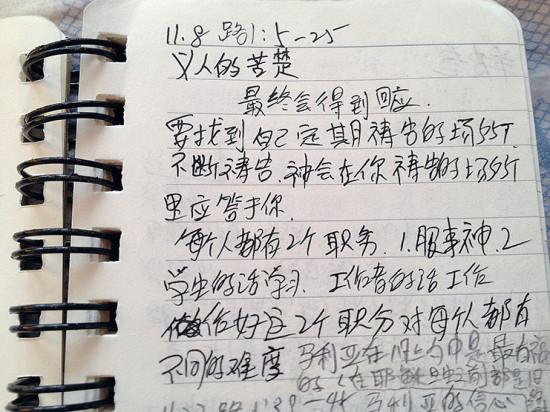 11.8 路1:5-25
义人的苦楚
最终会得到回应.
要找到自己定其月祷告的场所
不断祷告.神会在你祷告的场所
里应答于你.
每个人都有2个职务. 1.服事神.2
学生的话学习. 工作者的话工作
做好这2个职分对每个人都有
不同的难度 马利亚在 是最有福
的